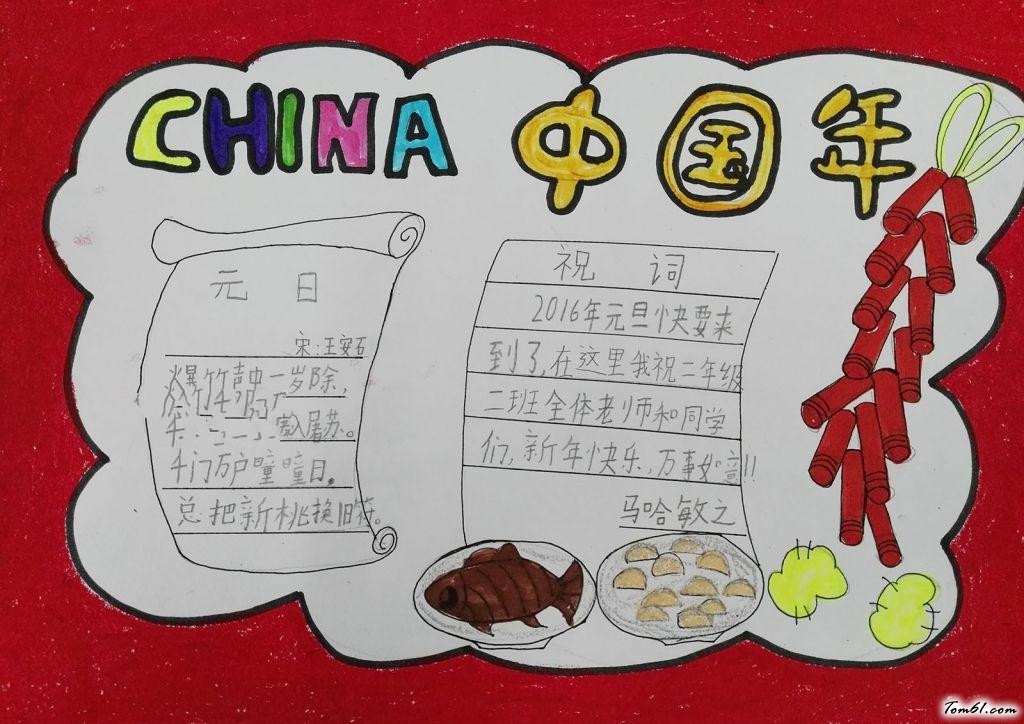 CHINA 中国年
元 日
宋:王安石
爆竹声中一岁除,
入屠苏。
千门万户曈曈日。
总把新桃换旧符。
祝 词
2016年元旦快要来
到了,在这里我祝二年级
二班全体老师和同学
们,新年快乐,万事如意!!
马哈敏之
Tom61.com